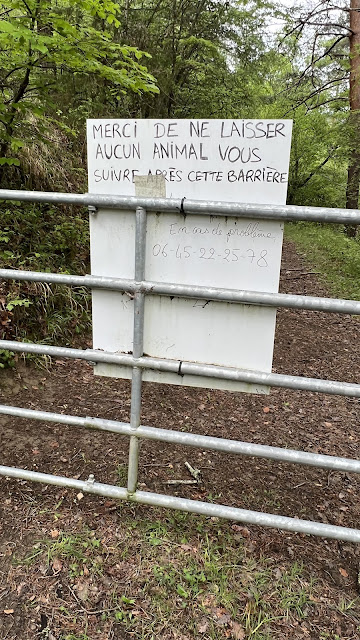 MERCI DE NE LAISSER
AUCUN ANIMAL VOUS
SUIVRE APRÈS CETTE BARRIÈRE
En cas de problème
06-45-22-25-78